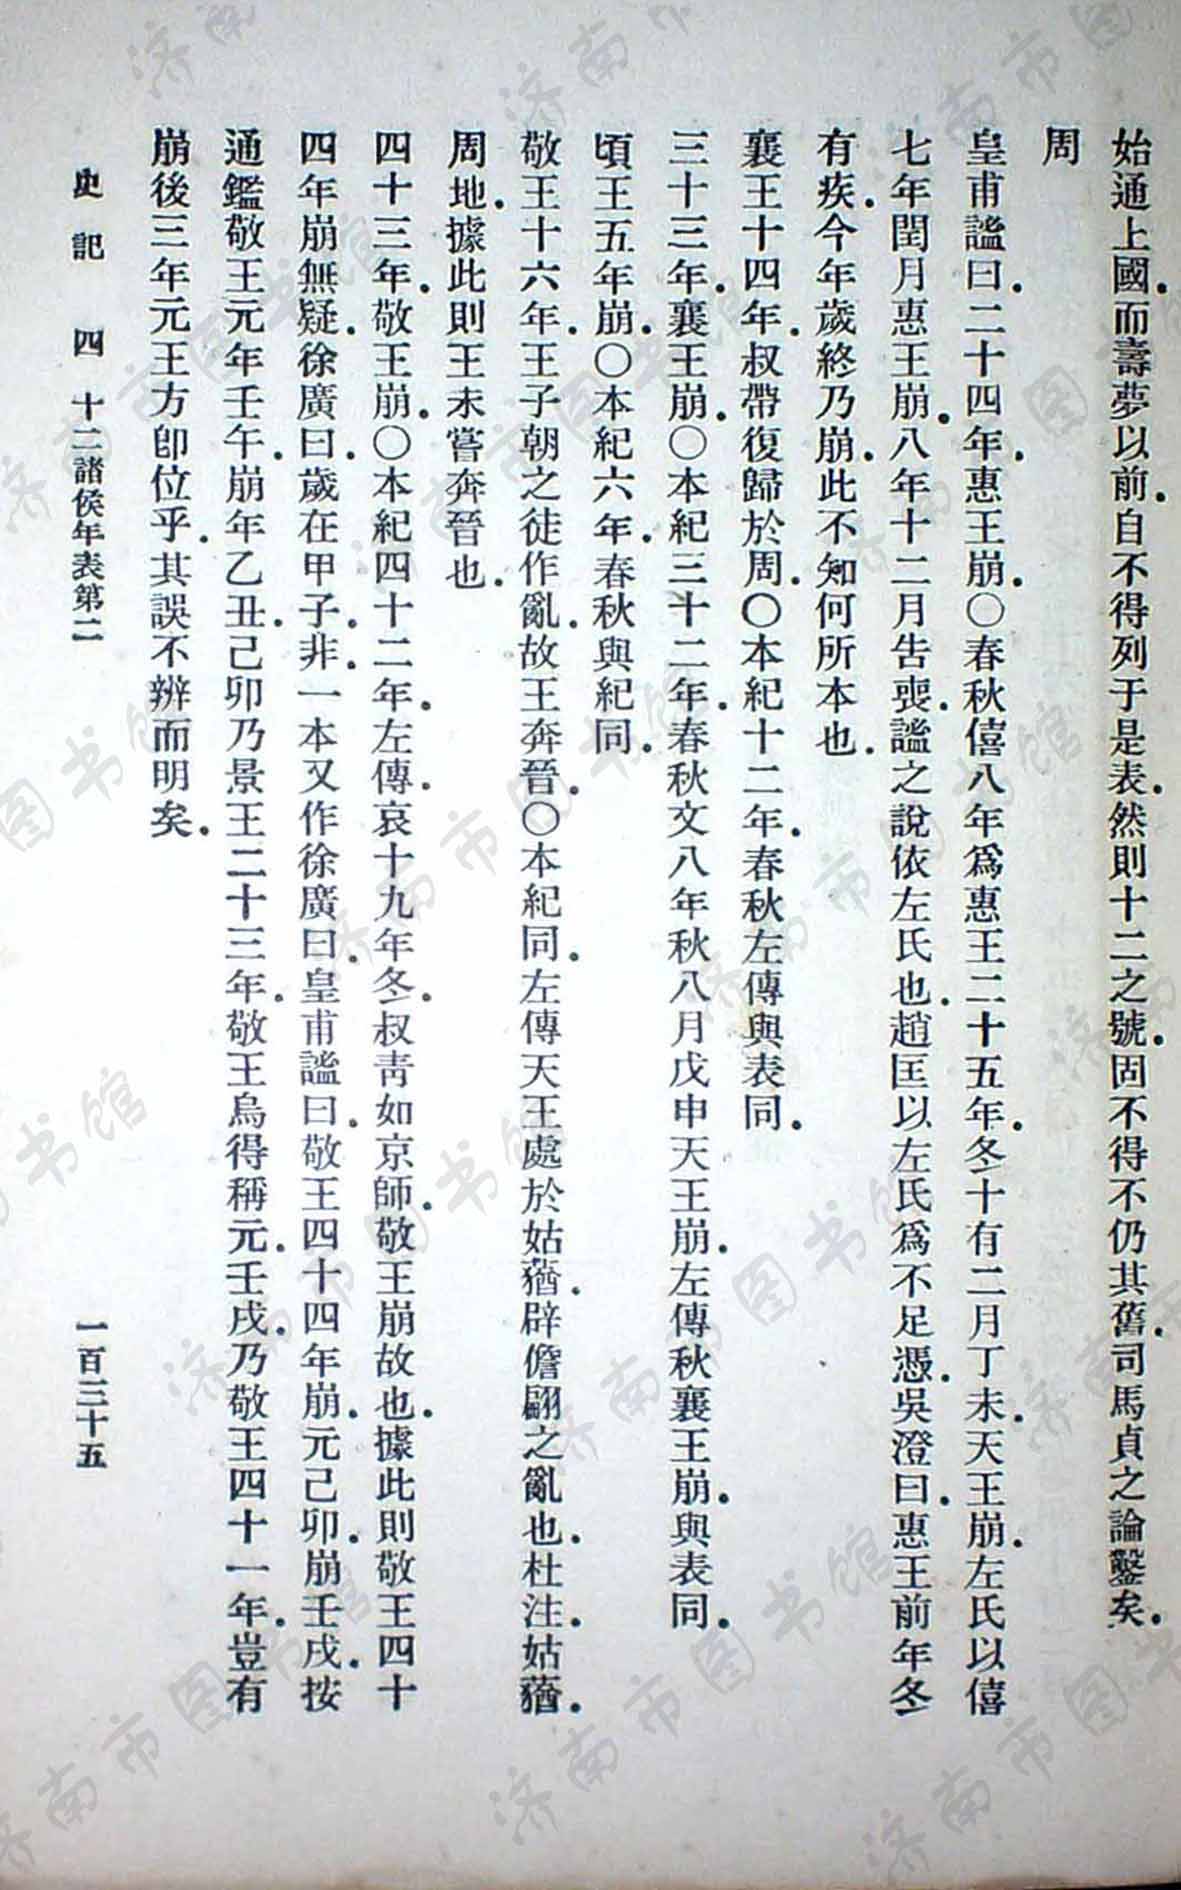 始通上國．而壽夢以前．自不得列于是表．然則十二之號．固不得不仍其舊．司馬貞之論鑿矣．
周
皇甫謐曰．二十四年．惠王崩．〇春秋僖八年爲惠王二十五年．冬十有二月丁未．天王崩．左氏以僖
七年閏月惠王崩．八年十二月告喪．謐之說依左氏也．趙匡以左氏爲不足憑．吳澄曰．惠王前年冬
有疾．今年歲終乃崩．此不知何所本也．
襄王十四年．叔帶復歸於周．〇本紀十二年．春秋左傳與表同．
三十三年．襄王崩．〇本紀三十二年．春秋文八年秋八月戊申天王崩．左傳秋襄王崩．與表同．
頃王五年崩．〇本紀六年．春秋與紀同．
敬王十六年．王子朝之徒作亂．故王奔晉．〇本紀同．左傳天王處於姑蕕．辟儋翩之亂也．杜注．姑蕕．
周地．據此則王未嘗奔晉也．
四十三年．敬王崩．〇本紀四十二年．左傳．哀十九年冬．叔靑如京師．敬王崩故也．據此則敬王四十
四年崩無疑．徐廣曰．歲在甲子．非．一本又作徐廣曰．皇甫謐曰．敬王四十四年崩．元己卯．崩壬戌．按
通鑑敬王元年壬午．崩年乙丑．己卯乃景王二十三年．敬王烏得稱元．壬戌．乃敬王四十一年．豈有
崩後三年元王方卽位乎．其誤不辨而明矣．
史記 四 十二諸侯年表第二 一百三十五
济南市图书馆